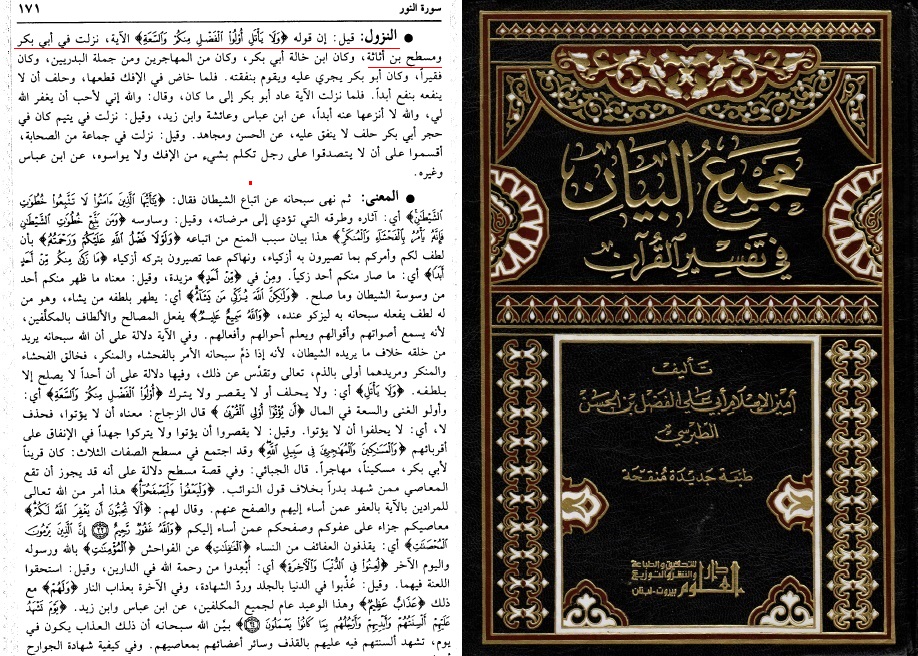 سورة النور
١٧١
● النزول: قيل: إن قوله ﴿وَلَا يَأْتَلِ أُولُوا الْفَضْلِ مِنكُمْ وَالسَّعَةِ﴾ الآية، نزلت في أبي بكر
ومسطح بن أثاثة، وكان ابن خالة أبي بكر، وكان من المهاجرين ومن جملة البدريين، وكان
فقيراً، وكان أبو بكر يجري عليه ويقوم بنفقته. فلما خاض في الإفك قطعها، وحلف أن لا
ينفعه بنفع أبداً. فلما نزلت الآية عاد أبو بكر إلى ما كان، وقال: والله إني لأحب أن يغفر الله
لي، والله لا أنزعها عنه أبداً، عن ابن عباس وعائشة وابن زيد، وقيل: نزلت في يتيم كان في
حجر أبي بكر حلف لا ينفق عليه، عن الحسن ومجاهد. وقيل: نزلت في جماعة من الصحابة،
أقسموا على أن لا يتصدقوا على رجل تكلم بشيء من الإفك ولا يواسوه، عن ابن عباس
وغيره.
● المعنى: ثم نهى سبحانه عن اتباع الشيطان فقال: ﴿يَا أَيُّهَا الَّذِينَ ءَامَنُوا لَا تَتَّبِعُوا خُطُوَاتِ
الشَّيْطَانِ﴾ أي: آثاره وطرقه التي تؤدي إلى مرضاته، وقيل: وساوسه ﴿وَمَن يَتَّبِعْ خُطُوَاتِ الشَّيْطَانِ
فَإِنَّهُ يَأْمُرُ بِالْفَحْشَاءِ وَالْمُنكَرِ﴾ هذا بيان سبب المنع من اتباعه ﴿وَلَوْلَا فَضْلُ اللَّهِ عَلَيْكُمْ وَرَحْمَتُهُ﴾ بأن
لطف لكم وأمركم بما تصيرون به أزكياء، ونهاكم عما تصيرون بتركه أزكياء ﴿مَا زَكَى مِنكُم مِّنْ أَحَدٍ
أَبَدًا﴾ أي: ما صار منكم أحد زكياً. ومِن في ﴿مِّنْ أَحَدٍ﴾ مزيدة، وقيل: معناه ما ظهر منكم أحد
من وسوسة الشيطان وما صلح. ﴿وَلَكِنَّ اللَّهَ يُزَكِّي مَن يَشَاءُ﴾ أي: يطهر بلطفه من يشاء، وهو من
له لطف يفعله سبحانه به ليزكو عنده، ﴿وَاللَّهُ سَمِيعٌ عَلِيمٌ﴾ يفعل المصالح والألطاف بالمكلَّفين،
لأنه يسمع أصواتهم وأقوالهم ويعلم أحوالهم وأفعالهم. وفي الآية دلالة على أن الله سبحانه يريد
من خلقه خلاف ما يريده الشيطان، لأنه إذا ذمَّ سبحانه الأمر بالفحشاء والمنكر، فخالق الفحشاء
والمنكر ومريدهما أولى بالذم، تعالى وتقدَّس عن ذلك، وفيها دلالة على أن أحداً لا يصلح إلا
بلطفه. ﴿وَلَا يَأْتَلِ﴾ أي: ولا يحلف أو لا يقصر ولا يترك ﴿أُولُوا الْفَضْلِ مِنكُمْ وَالسَّعَةِ﴾ أي:
وأولو الغنى والسعة في المال ﴿أَن يُؤْتُوا أُولِي الْقُرْبَى﴾ قال الزجاج: معناه أن لا يؤتوا، فحذف
لا، أي: لا يحلفوا أن لا يؤتوا. وقيل: لا يقصروا أن يؤتوا ولا يتركوا جهداً في الإنفاق على
أقربائهم ﴿وَالْمَسَاكِينَ وَالْمُهَاجِرِينَ فِي سَبِيلِ اللَّهِ﴾ وقد اجتمع في مسطح الصفات الثلاث: كان قريباً
لأبي بكر، مسكيناً، مهاجراً. قال الجبائي: وفي قصة مسطح دلالة على أنه قد يجوز أن تقع
المعاصي ممن شهد بدراً بخلاف قول النوائب. ﴿وَلْيَعْفُوا وَلْيَصْفَحُوا﴾ هذا أمر من الله تعالى
للمرادين بالآية بالعفو عمن أساء إليهم والصفح عنهم. وقال لهم: ﴿أَلَا تُحِبُّونَ أَن يَغْفِرَ اللَّهُ لَكُمْ﴾
معاصيكم جزاء على عفوكم وصفحكم عمن أساء إليكم ﴿وَاللَّهُ غَفُورٌ رَّحِيمٌ ٢٢ إِنَّ الَّذِينَ يَرْمُونَ
الْمُحْصَنَاتِ﴾ أي: يقذفون العفائف من النساء ﴿الْغَافِلَاتِ﴾ عن الفواحش ﴿الْمُؤْمِنَاتِ﴾ بالله ورسوله
واليوم الآخر ﴿لُعِنُوا فِي الدُّنْيَا وَالْآخِرَةِ﴾ أي: أُبعدوا من رحمة الله في الدارين، وقيل: استحقوا
اللعنة فيهما. وقيل: عُذِّبوا في الدنيا بالجلد وردّ الشهادة، وفي الآخرة بعذاب النار ﴿وَلَهُمْ﴾ مع
ذلك ﴿عَذَابٌ عَظِيمٌ﴾ وهذا الوعيد عام لجميع المكلفين، عن ابن عباس وابن زيد. ﴿يَوْمَ تَشْهَدُ
عَلَيْهِمْ أَلْسِنَتُهُمْ وَأَيْدِيهِمْ وَأَرْجُلُهُم بِمَا كَانُوا يَعْمَلُونَ ٢٤﴾ بيَّن الله سبحانه أن ذلك العذاب يكون في
يوم، تشهد ألسنتهم فيه عليهم بالقذف وسائر أعضائهم بمعاصيهم. وفي كيفية شهادة الجوارح
مجمع البيان
في تفسير القرآن
تأليف
أمين الإسلام أبي علي الفضل بن الحسن
الطبرسي
طبعة جديدة منقحة
دار العلوم
للتحقيق والطباعة
والنشر والتوزيع
بيروت - لبنان